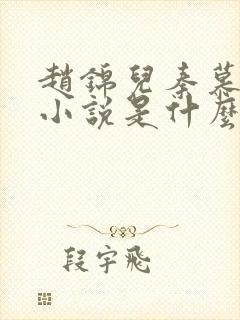 趙錦兒秦慕
小說是什麼
段宇飛